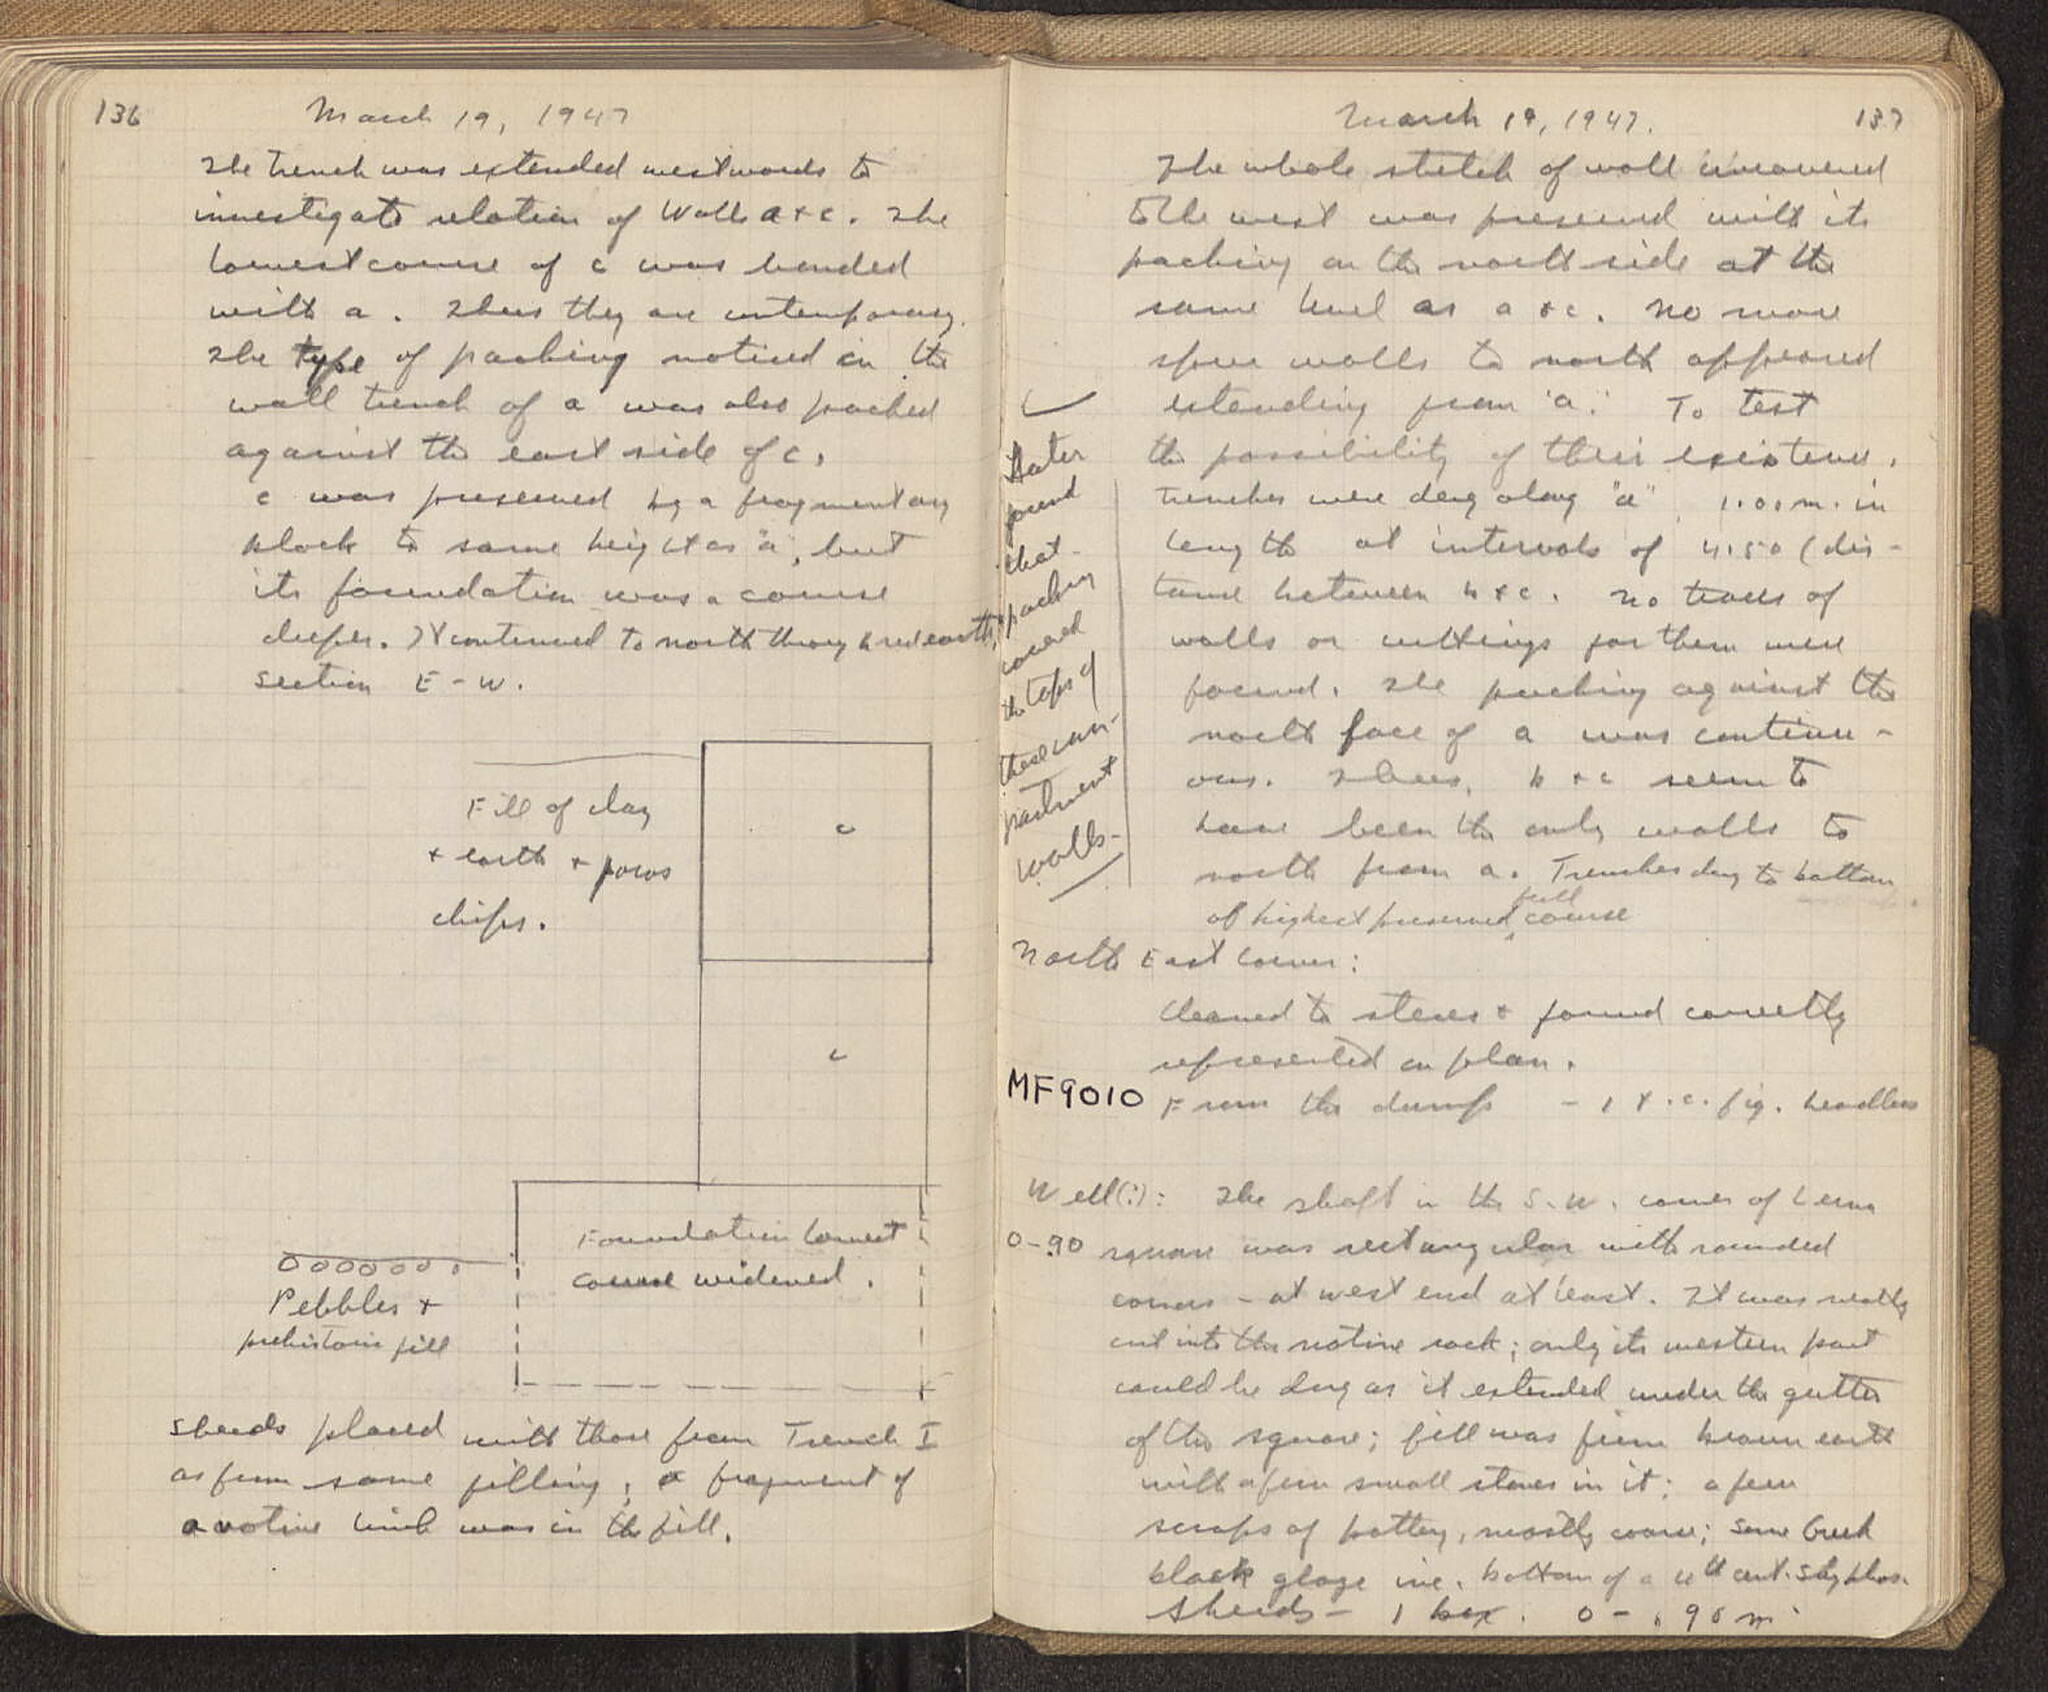 136
March 19, 1947
The trench was extended westwards to
investigate relation of Walls a + c. The
lowest course of c was bonded
with a. Thus they are contemporary.
The type of packing noticed in the
wall trench of a was also packed
against the east side of c.
c was preserved by a fragmentary
block to same height as "a", but
its foundation was a course
deeper. It continued to north through red earth,
section E-W.
c
Fill of clay
+ earth + poros
chips.
c
Foundation lowest
course widened.
Pebbles +
prehistoric fill
Sherds placed with those from Trench I
as from same filling; a fragment of
a votive limb was in the fill.
March 19, 1947.
137
The whole stretch of wall uncovered
to the west was preserved with its
packing on the north side at the
same level as a + c. No more
spur walls to north appeared
extending from "a". To test
the possibility of their existence,
trenches were dug along "a" 1.00 m. in
length at intervals of 4.50 (dis-
tance between b + c. No traces of
walls or cuttings for them were
found. The packing against the
north face of a was continu-
ous. Thus, b + c seem to
have been the only walls to
north from a. Trenches dug to bottom
of highest preserved full course
Later
found
that
packing
covered
the tops of
these com-
partment
walls-
North East Corner:
Cleaned to stereo + found correctly
represented on plan.
MF9010
From the dump - 1 t.c. fig. headless
Well(?): The shaft in the S.W. corner of Lerna
0-.90
square was rectangular with rounded
corners - at west end at least. It was neatly
cut into the native rock; only its western part
could be dug as it extended under the gutter
of the square; fill was firm brown earth
with a few small stones in it; a few
scraps of pottery, mostly coarse; some Greek
black glaze inc. bottom of a cent. skyphos.
Sherds - 1 box. 0 - .90 m.